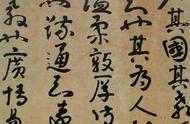 其國其教
也其為人
溫柔敦厚詩
疏通知遠
教也廣博易